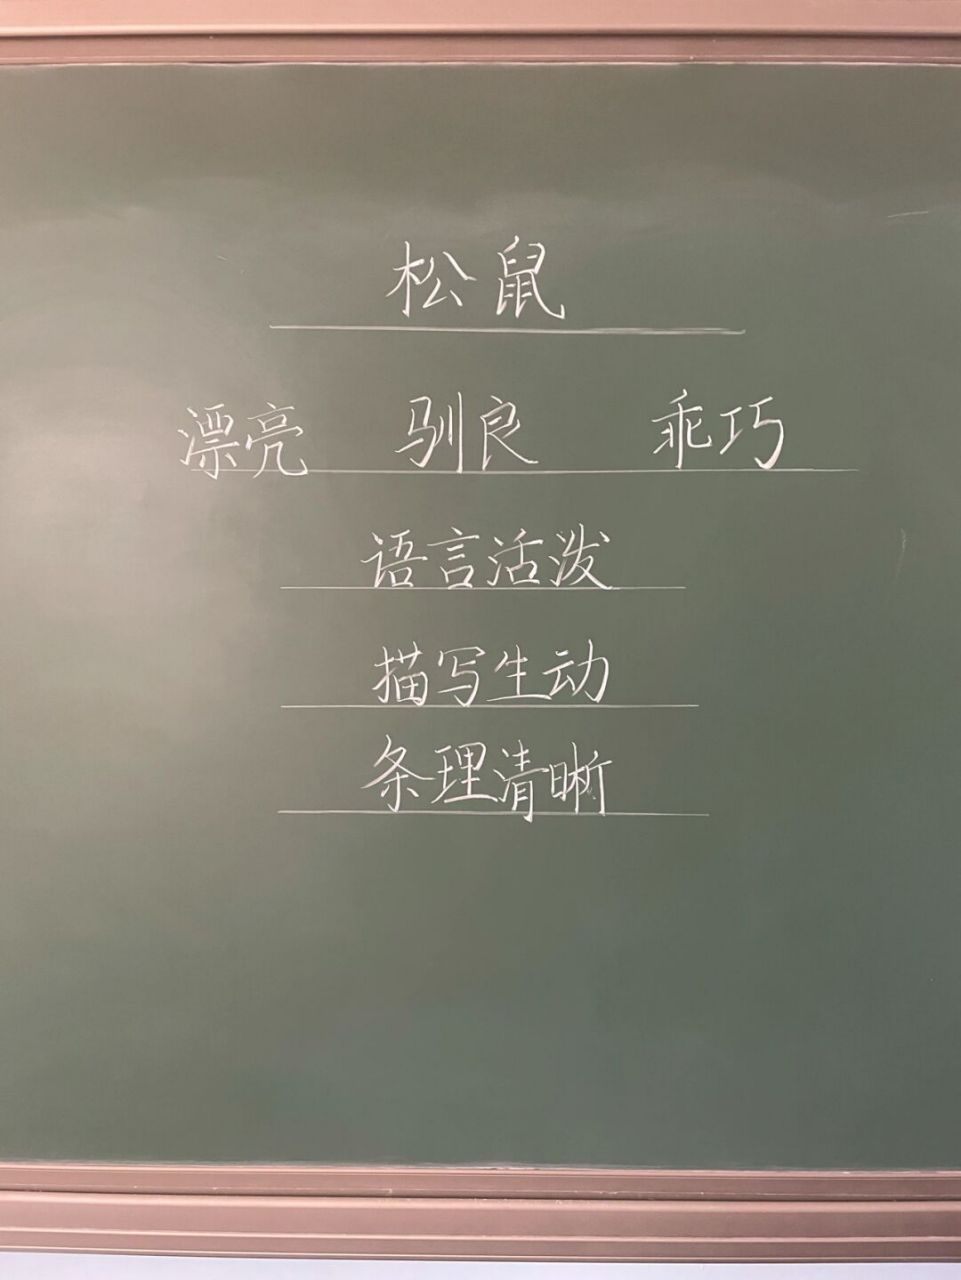 松鼠
漂亮 驯良 乖巧
语言活泼
描写生动
条理清晰